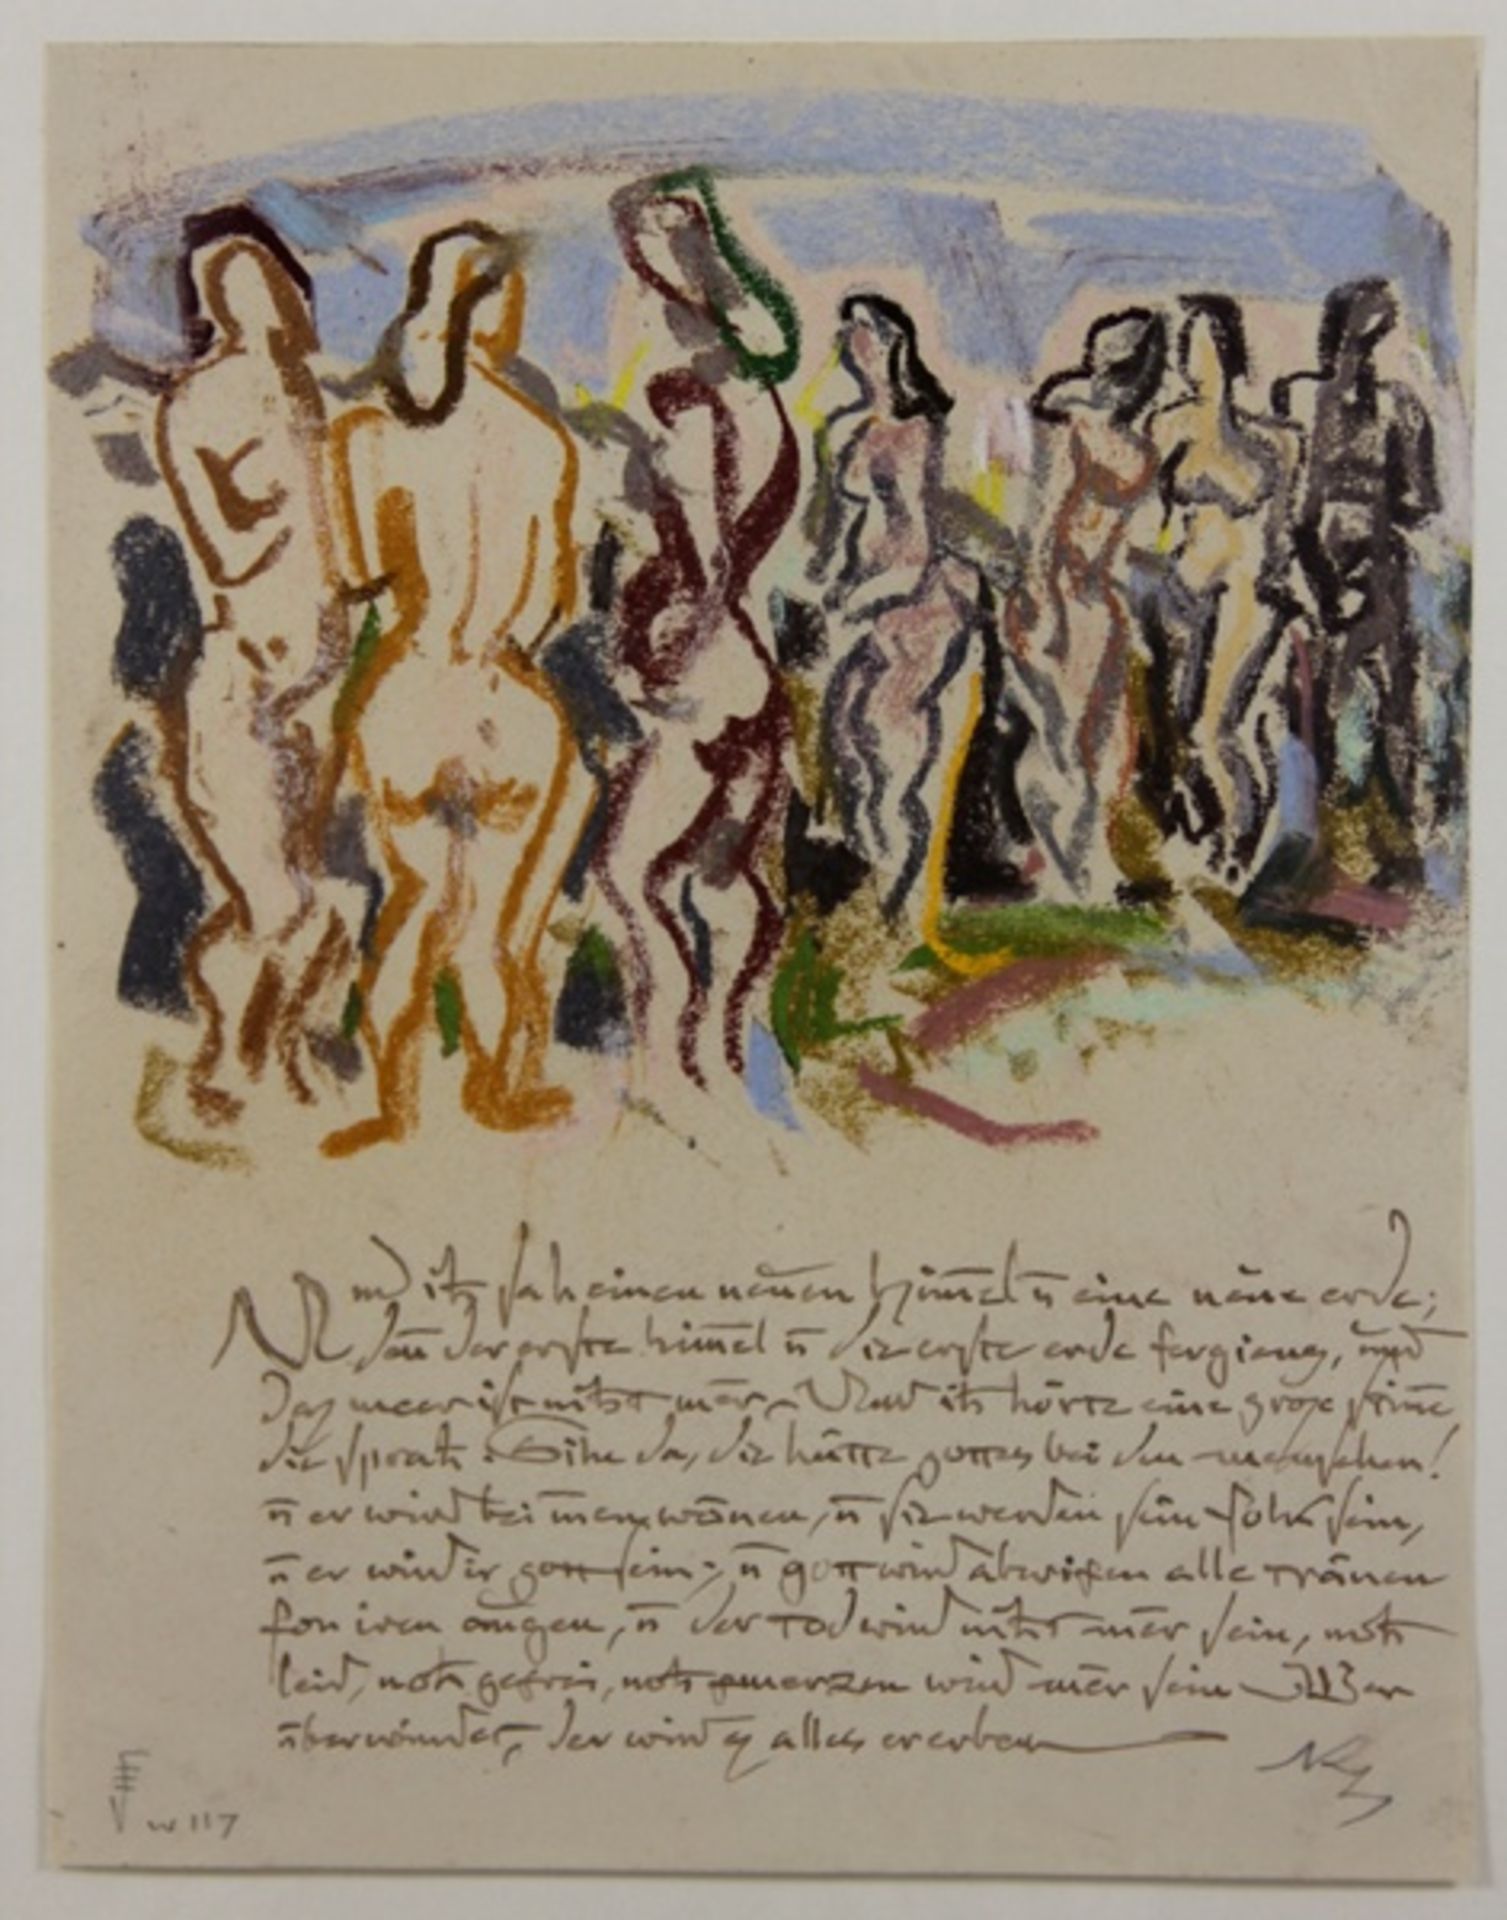 Und ich sah einen neuen himel ū eine neue erde;
den der erste himel ū die erste erde fergieng, und
das meer ist nicht mer. Und ich hörte eine große stime,
die sprach: Sihe da, die hütte gottes bei den menschen!
ū er wird bei inen wonen, ū sie werden sein folk sein,
ū er wird ir gott sein; ū gott wird abwischen alle tränen
fon iren augen, ū der tod wird nicht mer sein, noch
leid, noch geschrei, noch schmerzen wird mer sein. Wer
überwindet, der wird es alles ererben
w 117